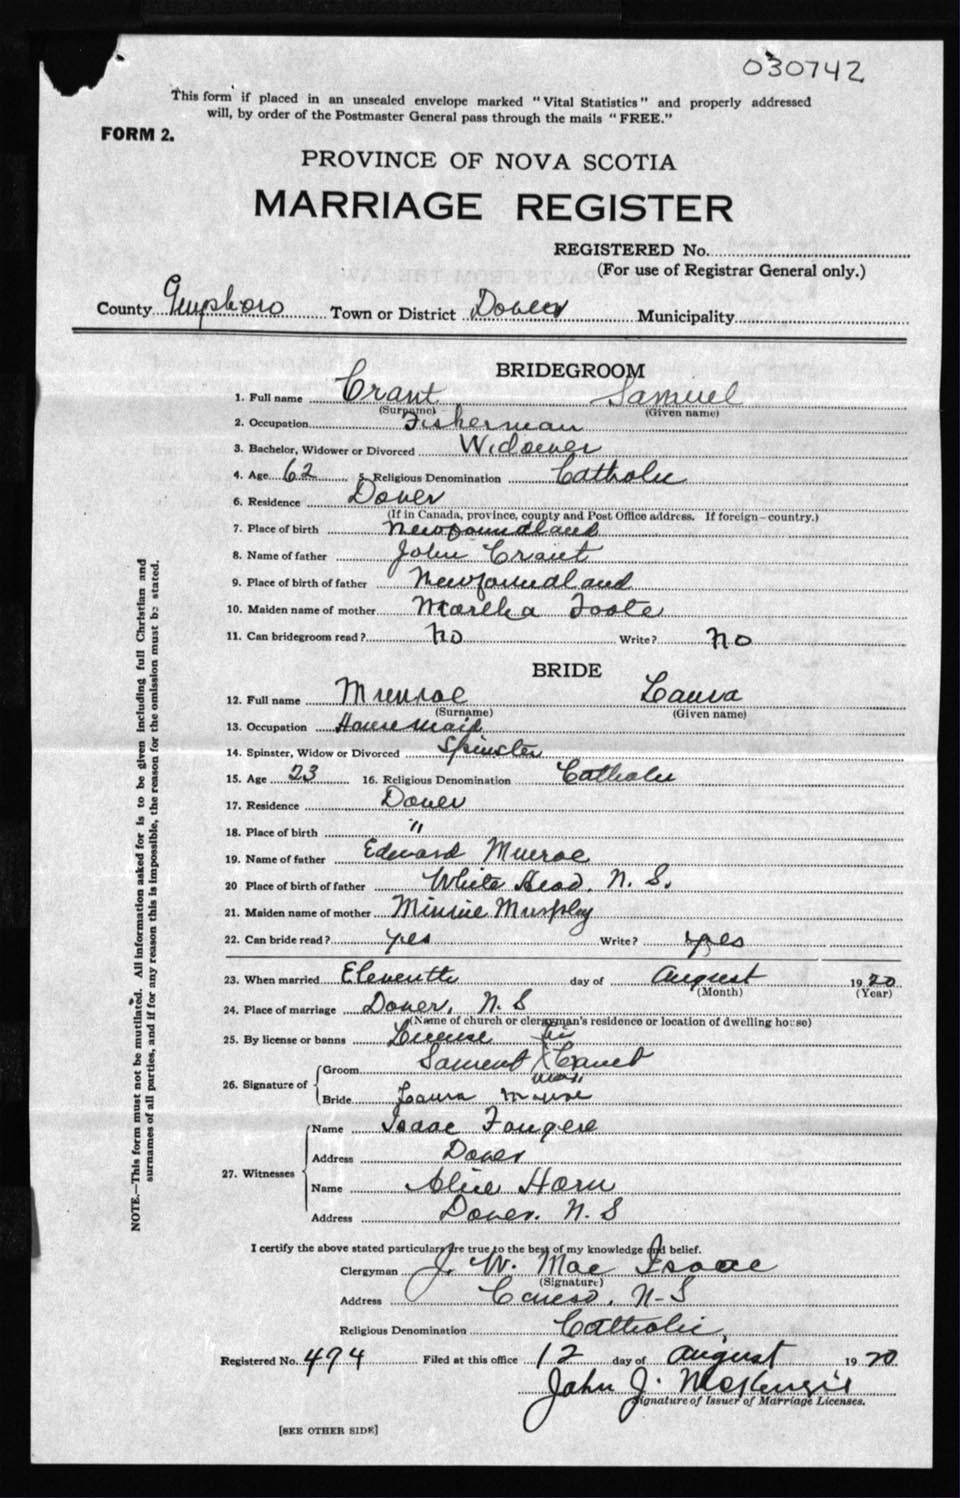 030742
This form if placed in an unsealed envelope marked "Vital Statistics" and properly addressed
will, by order of the Postmaster General pass through the mails "FREE."
FORM 2.
PROVINCE OF NOVA SCOTIA
MARRIAGE REGISTER
REGISTERED No.
(For use of Registrar General only.)
County Guysboro Town or District Dover Municipality
BRIDEGROOM
1. Full name Crant Samuel
(Surname) (Given name)
2. Occupation Fisherman
3. Bachelor, Widower or Divorced Widower
4. Age 62 5. Religious Denomination Catholic
6. Residence Dover
(If in Canada, province, county and Post Office address. If foreign-country.)
7. Place of birth Newfoundland
8. Name of father John Crant
9. Place of birth of father Newfoundland
10. Maiden name of mother Martha Foote
11. Can bridegroom read? No Write? No
BRIDE
12. Full name Munroe Laura
(Surname) (Given name)
13. Occupation House maid
14. Spinster, Widow or Divorced Spinster
15. Age 23 16. Religious Denomination Catholic
17. Residence Dover
18. Place of birth "
19. Name of father Edward Munroe
20 Place of birth of father White Head, N. S.
21. Maiden name of mother Minnie Murphy
22. Can bride read? yes Write? yes
23. When married Eleventh day of August 1920
(Month) (Year)
24. Place of marriage Dover, N. S
(Name of church or clergyman's residence or location of dwelling house)
25. By license or banns License
26. Signature of Groom X Crant
Bride Laura
27. Witnesses Name Isaac Fougere
Address Dover
Name Alice Horn
Address Dover. N. S
I certify the above stated particulars are true to the best of my knowledge and belief.
Clergyman J. W. Mac Isaac
(Signature)
Address Canso, N-S
Religious Denomination Catholic
Registered No. 474 Filed at this office 12 day of August 1920
John J. McKenzie
Signature of Issuer of Marriage Licenses.
[SEE OTHER SIDE]
NOTE.—This form must not be mutilated. All information asked for is to be given including full Christian and
surnames of all parties, and if for any reason this is impossible, the reason for the omission must be stated.